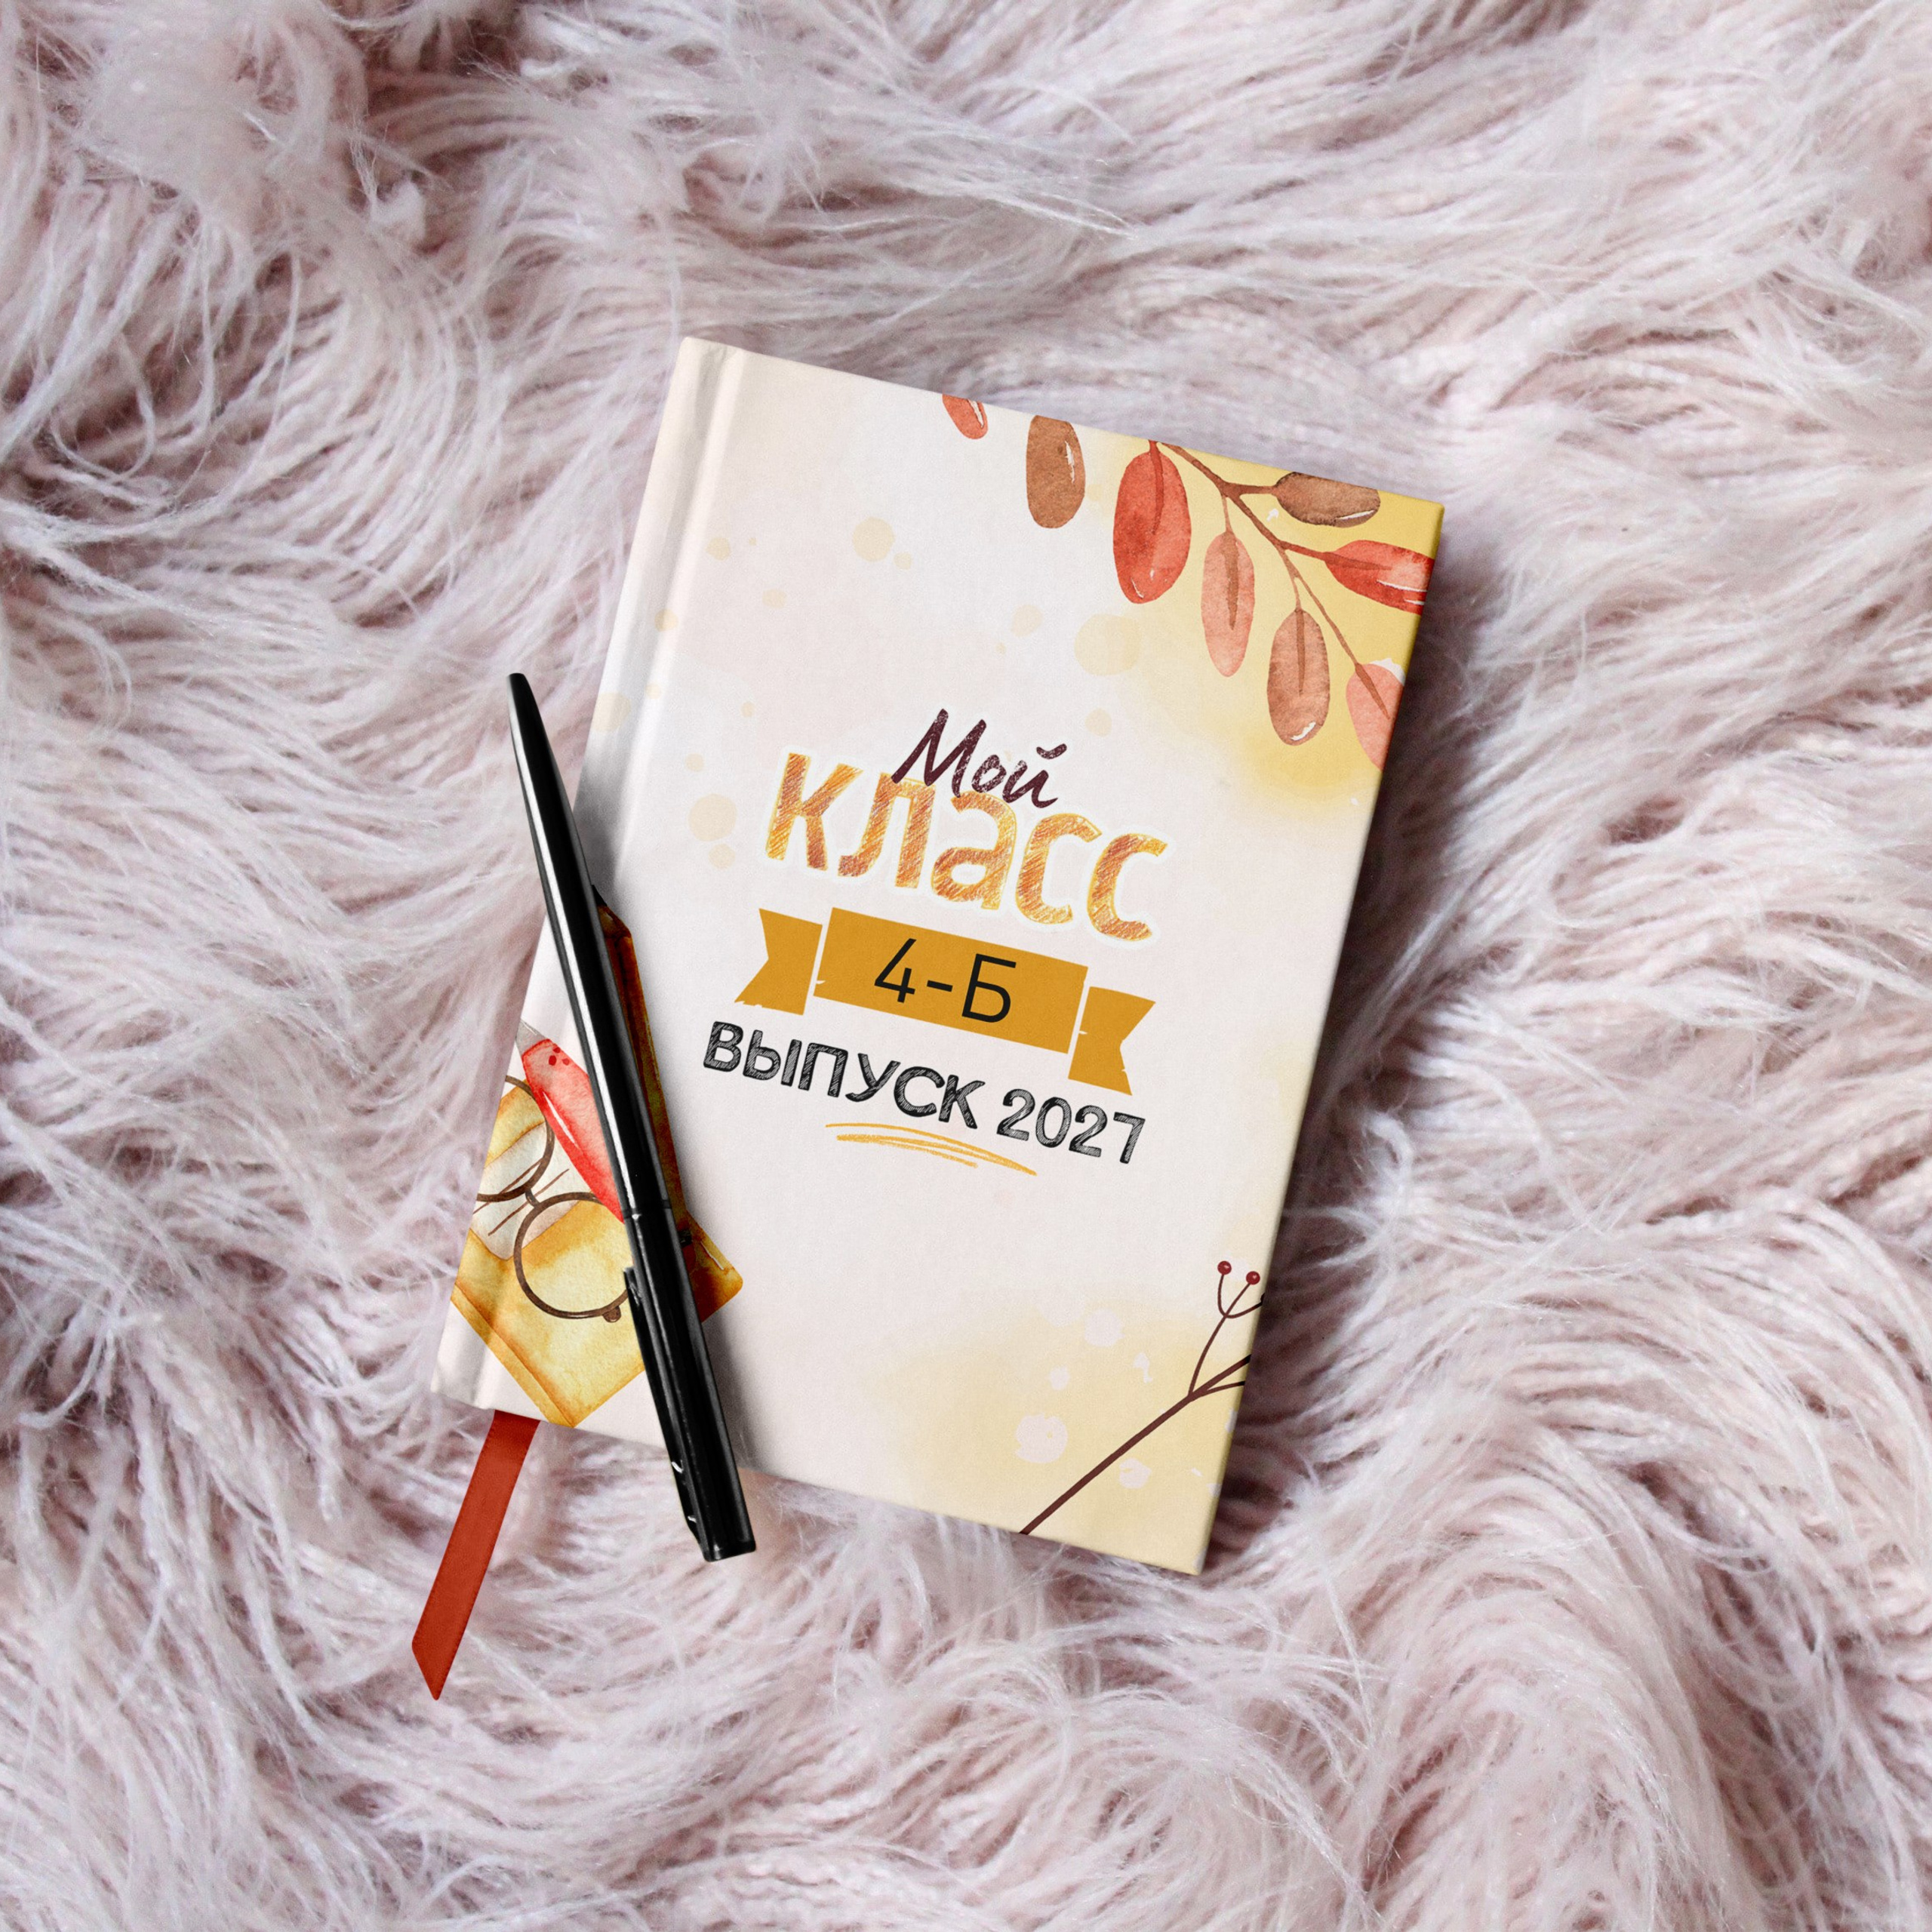 Мой
класс
4-Б
ВЫПУСК 2027